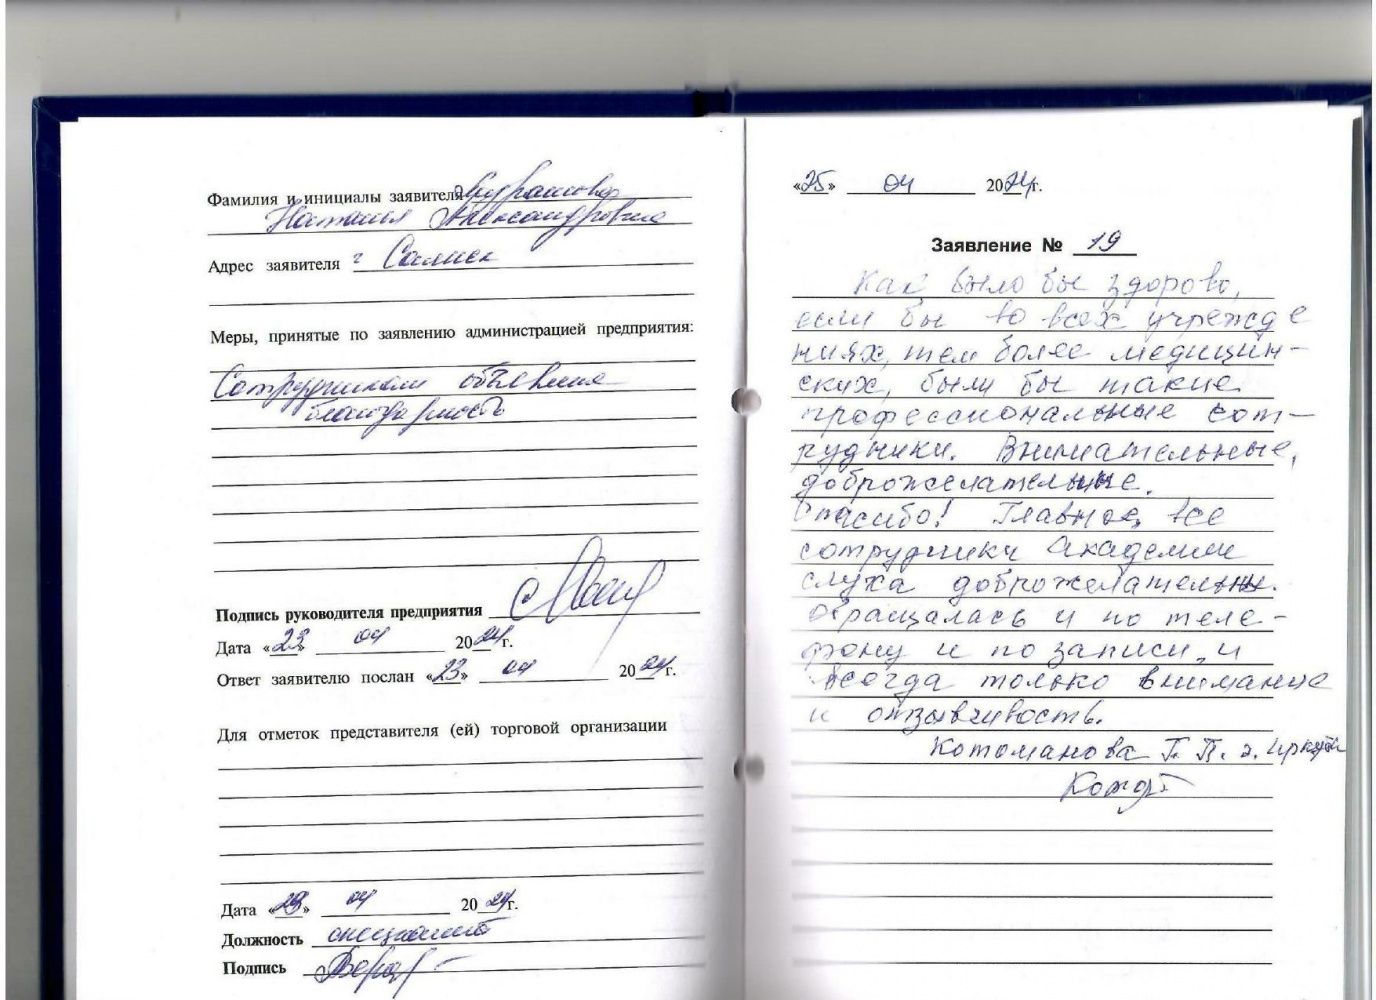 Фамилия и инициалы заявителя
Наталья Александровна
Адрес заявителя г Саянск
Меры, принятые по заявлению администрацией предприятия:
Сотрудникам объявлена
благодарность
Подпись руководителя предприятия
Дата «23» 04 2024г.
Ответ заявителю послан «23» 04 2024 г.
Для отметок представителя (ей) торговой организации
Дата «23» 04 2024г.
Должность специалист
Подпись
«25» 04 2024г.
Заявление № 19
Как было бы здорово,
если бы во всех учрежде
ниях, тем более медицин-
ских, были бы такие
профессиональные сот-
рудники. Внимательные,
доброжелательные.
Спасибо! Главное, все
сотрудники Академии
слуха доброжелательны.
Обращалась и по теле-
фону и по записи, и
всегда только внимание
и отзывчивость.
Котоманова Г. П. г. Иркутск